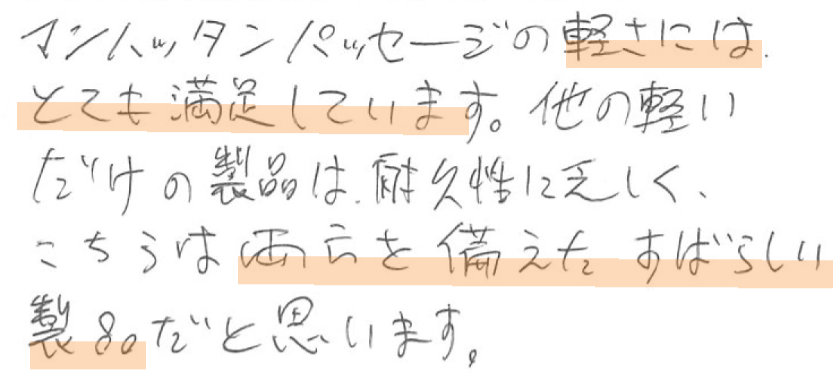 マンハッタンパッセージの軽さには、
とても満足しています。他の軽い
だけの製品は、耐久性に乏しく、
こちらは両方を備えたすばらしい
製品だと思います。